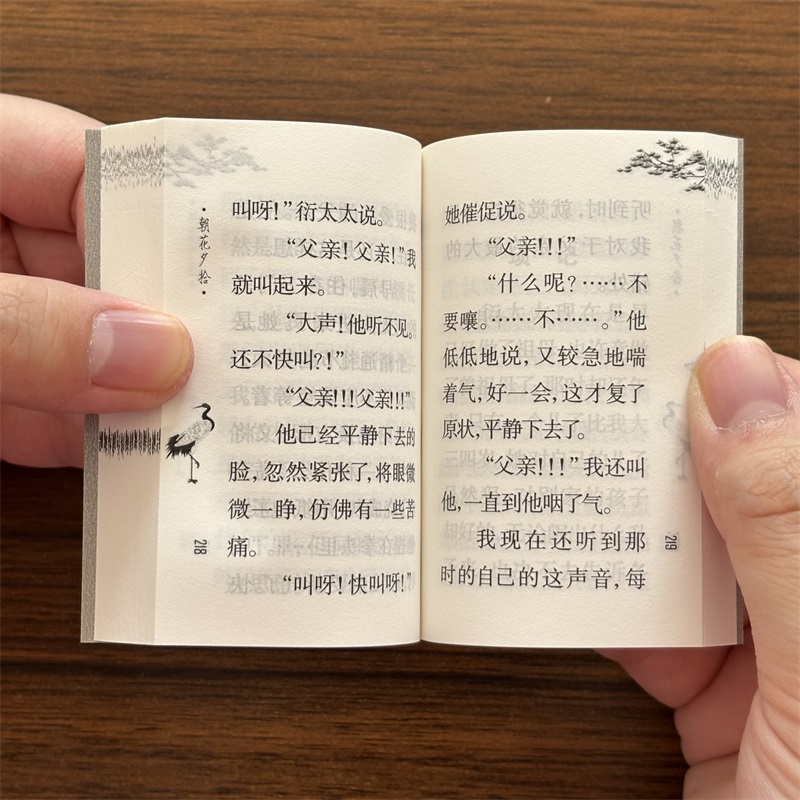 ·朝花夕拾·
叫呀！”衍太太说。
“父亲！父亲！”我
就叫起来。
“大声！他听不见。
还不快叫？！”
“父亲！！！父亲！！！”
他已经平静下去的
脸，忽然紧张了，将眼微
微一睁，仿佛有一些苦
痛。
“叫呀！快叫呀！”
218
她催促说。
“父亲！！！”
“什么呢？……不
要嚷。……不……。”他
低低地说，又较急地喘
着气，好一会，这才复了
原状，平静下去了。
“父亲！！！”我还叫
他，一直到他咽了气。
我现在还听到那
时的自己的这声音，每
219